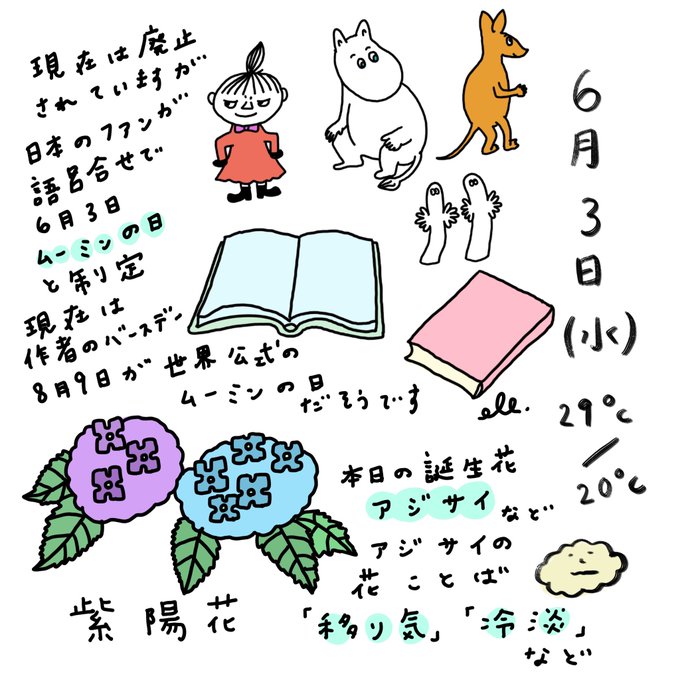 現在は廃止
されていますが
日本のファンが
語呂合せで
6月3日
ムーミンの日
と制定
現在は
作者のバースデー
8月9日が世界公式の
ムーミンの日
だそうです
6月3日(水)
29℃
/
20℃
ele.
本日の誕生花
アジサイなど
アジサイの
花ことば
「移り気」「冷淡」
など
紫陽花